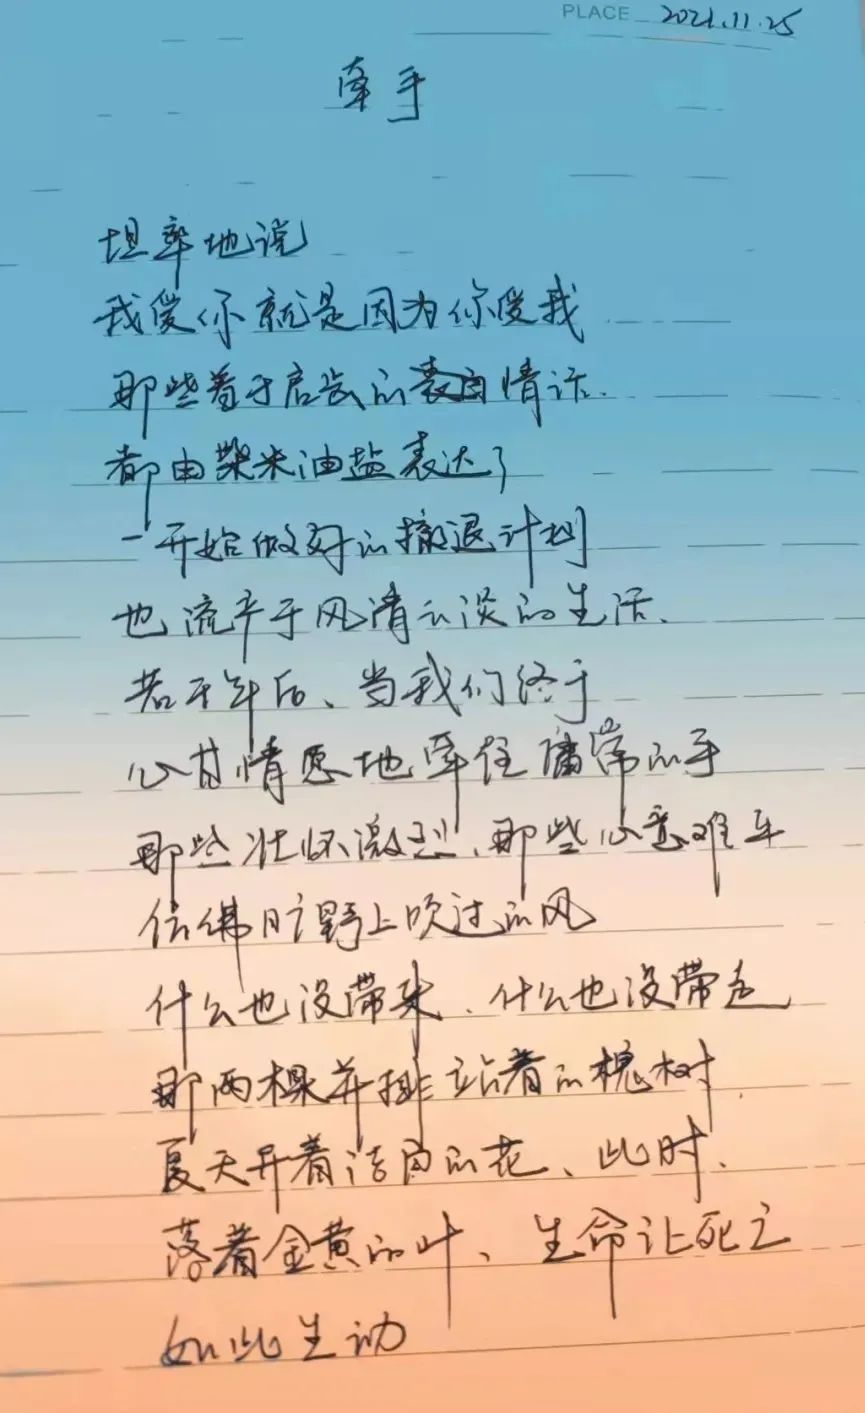 PLACE 2021.11.25
牵手
坦率地说
我爱你就是因为你爱我
那些羞于启齿的表白情话.
都由柴米油盐表达了
一开始做好的撤退计划
也流产于风清云淡的生活、
若干年后、当我们终于
心甘情愿地牵住庸常的手
那些壮怀激烈、那些心意难平
仿佛旷野上吹过的风
什么也没带来、什么也没带走
那两棵并排站着的槐树
夏天开着洁白的花、此时、
落着金黄的叶、生命让死亡
如此生动